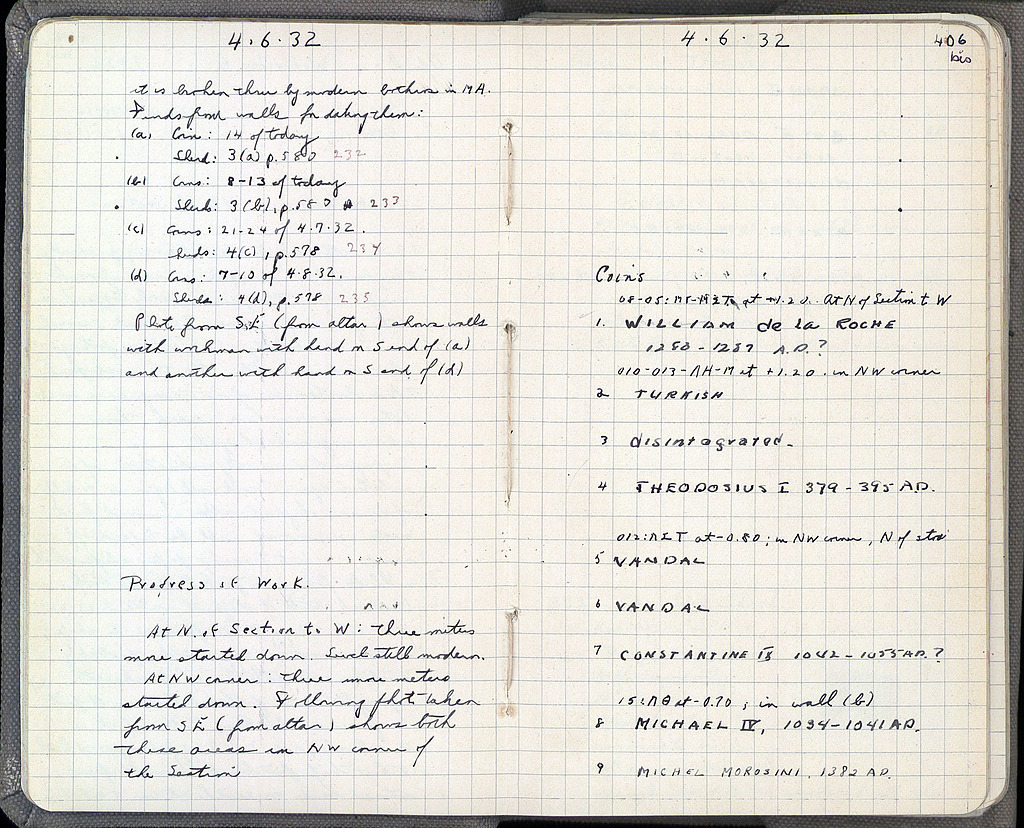 4.6.32
it is broken thru by modern bothros in MA.
Finds from walls for dating them:
(a) Coin: 14 of today
Sherd: 3(a) p.580 232
(b) Coins: 8-13 of today
Sherds: 3(b), p.580 233
(c) Coins: 21-24 of 4.7.32.
Sherds: 4(c), p.578 234
(d) Coins: 7-10 of 4.8.32.
Sherds: 4(d), p.578 235
Photo from S.E (from altar) shows walls
with workman with hand on S end of (a)
and another with hand on S end of (d)
Progress of Work.
At N. of Section to W: three meters
more started down. Level still modern.
At NW corner: three more meters
started down. Following photo taken
from SE (from altar) shows both
these areas in NW corner of
the Section
4.6.32
406
bis
Coins
at +1.20. At N of Section to W
1. WILLIAM de la ROCHE
1280-1287 A.D.?
010-013-ΛH-M at +1.20. in NW corner
2 TURKISH
3 disintagrated.
4 THEODOSIUS I 379-395 A.D.
at -0.80; in NW corner, N of
5 VANDAL
6 VANDAL
7 CONSTANTINE IX 1042-1055 A.D.?
15:ΛΘ at -0.70; in wall (b)
8 MICHAEL IV, 1034-1041 A.D.
9 MICHEL MOROSINI, 1382 A.D.